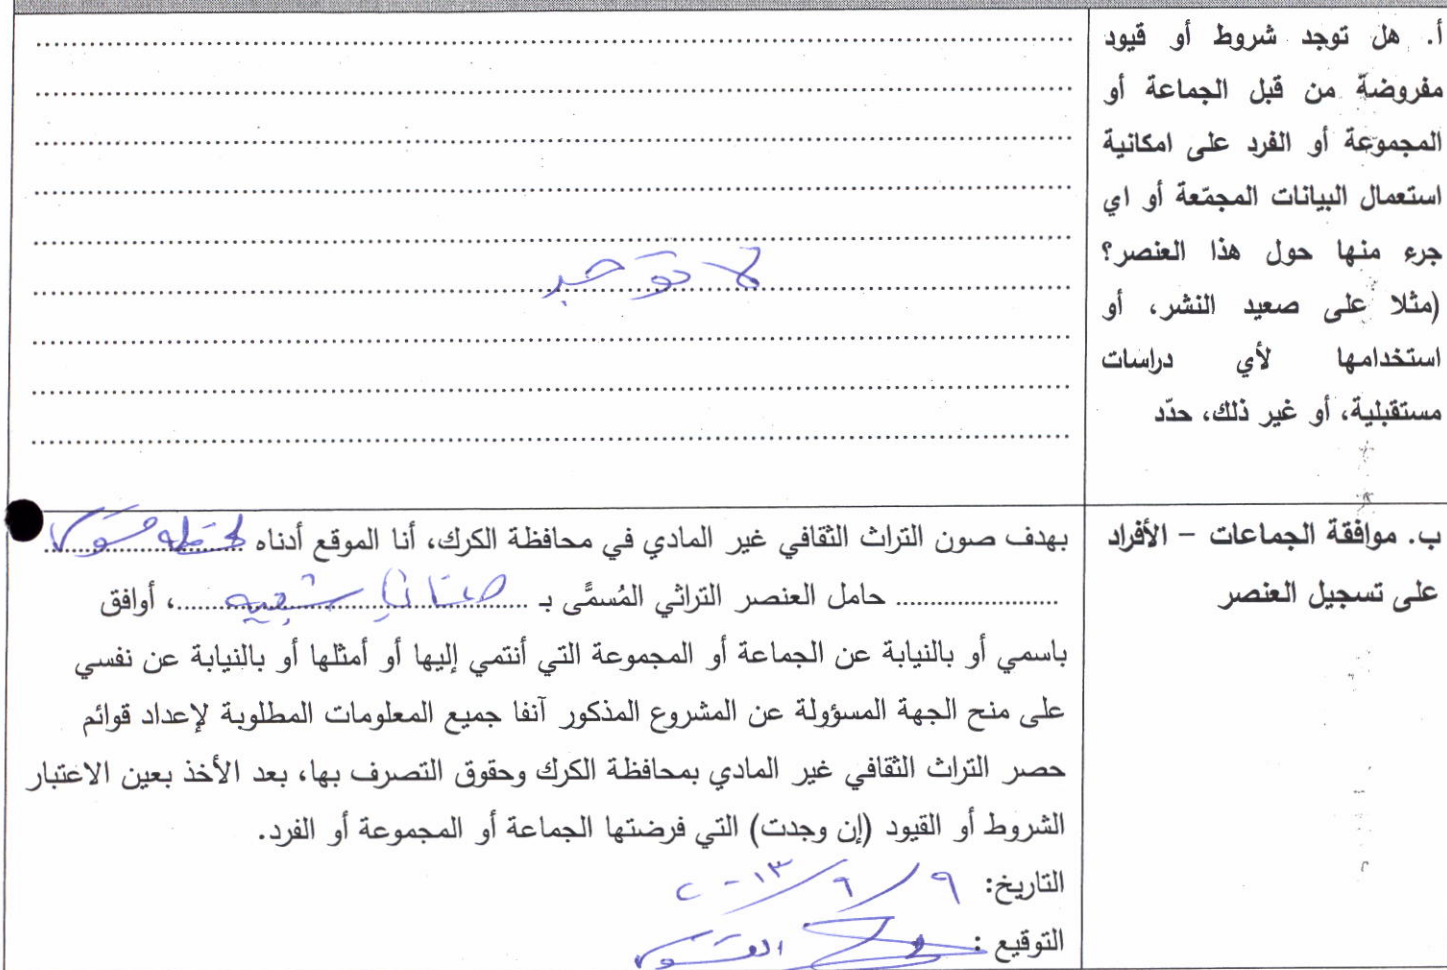 أ. هل توجد شروط أو قيود
مفروضة من قبل الجماعة أو
المجموعة أو الفرد على امكانية
استعمال البيانات المجمّعة أو اي
جرء منها حول هذا العنصر؟
(مثلا على صعيد النشر، أو
استخدامها لأي دراسات
مستقبلية، أو غير ذلك، حدّد
لا توجد
ب. موافقة الجماعات - الأفراد
على تسجيل العنصر
بهدف صون التراث الثقافي غير المادي في محافظة الكرك، أنا الموقع أدناه
حامل العنصر التراثي المُسمَّى بـ شعبيه، أوافق
باسمي أو بالنيابة عن الجماعة أو المجموعة التي أنتمي إليها أو أمثلها أو بالنيابة عن نفسي
على منح الجهة المسؤولة عن المشروع المذكور آنفا جميع المعلومات المطلوبة لإعداد قوائم
حصر التراث الثقافي غير المادي بمحافظة الكرك وحقوق التصرف بها، بعد الأخذ بعين الاعتبار
الشروط أو القيود (إن وجدت) التي فرضتها الجماعة أو المجموعة أو الفرد.
التاريخ: ٩/٦/٢٠١٣
التوقيع :